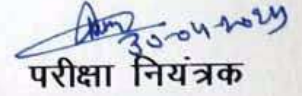 30-04-2024
परीक्षा नियंत्रक